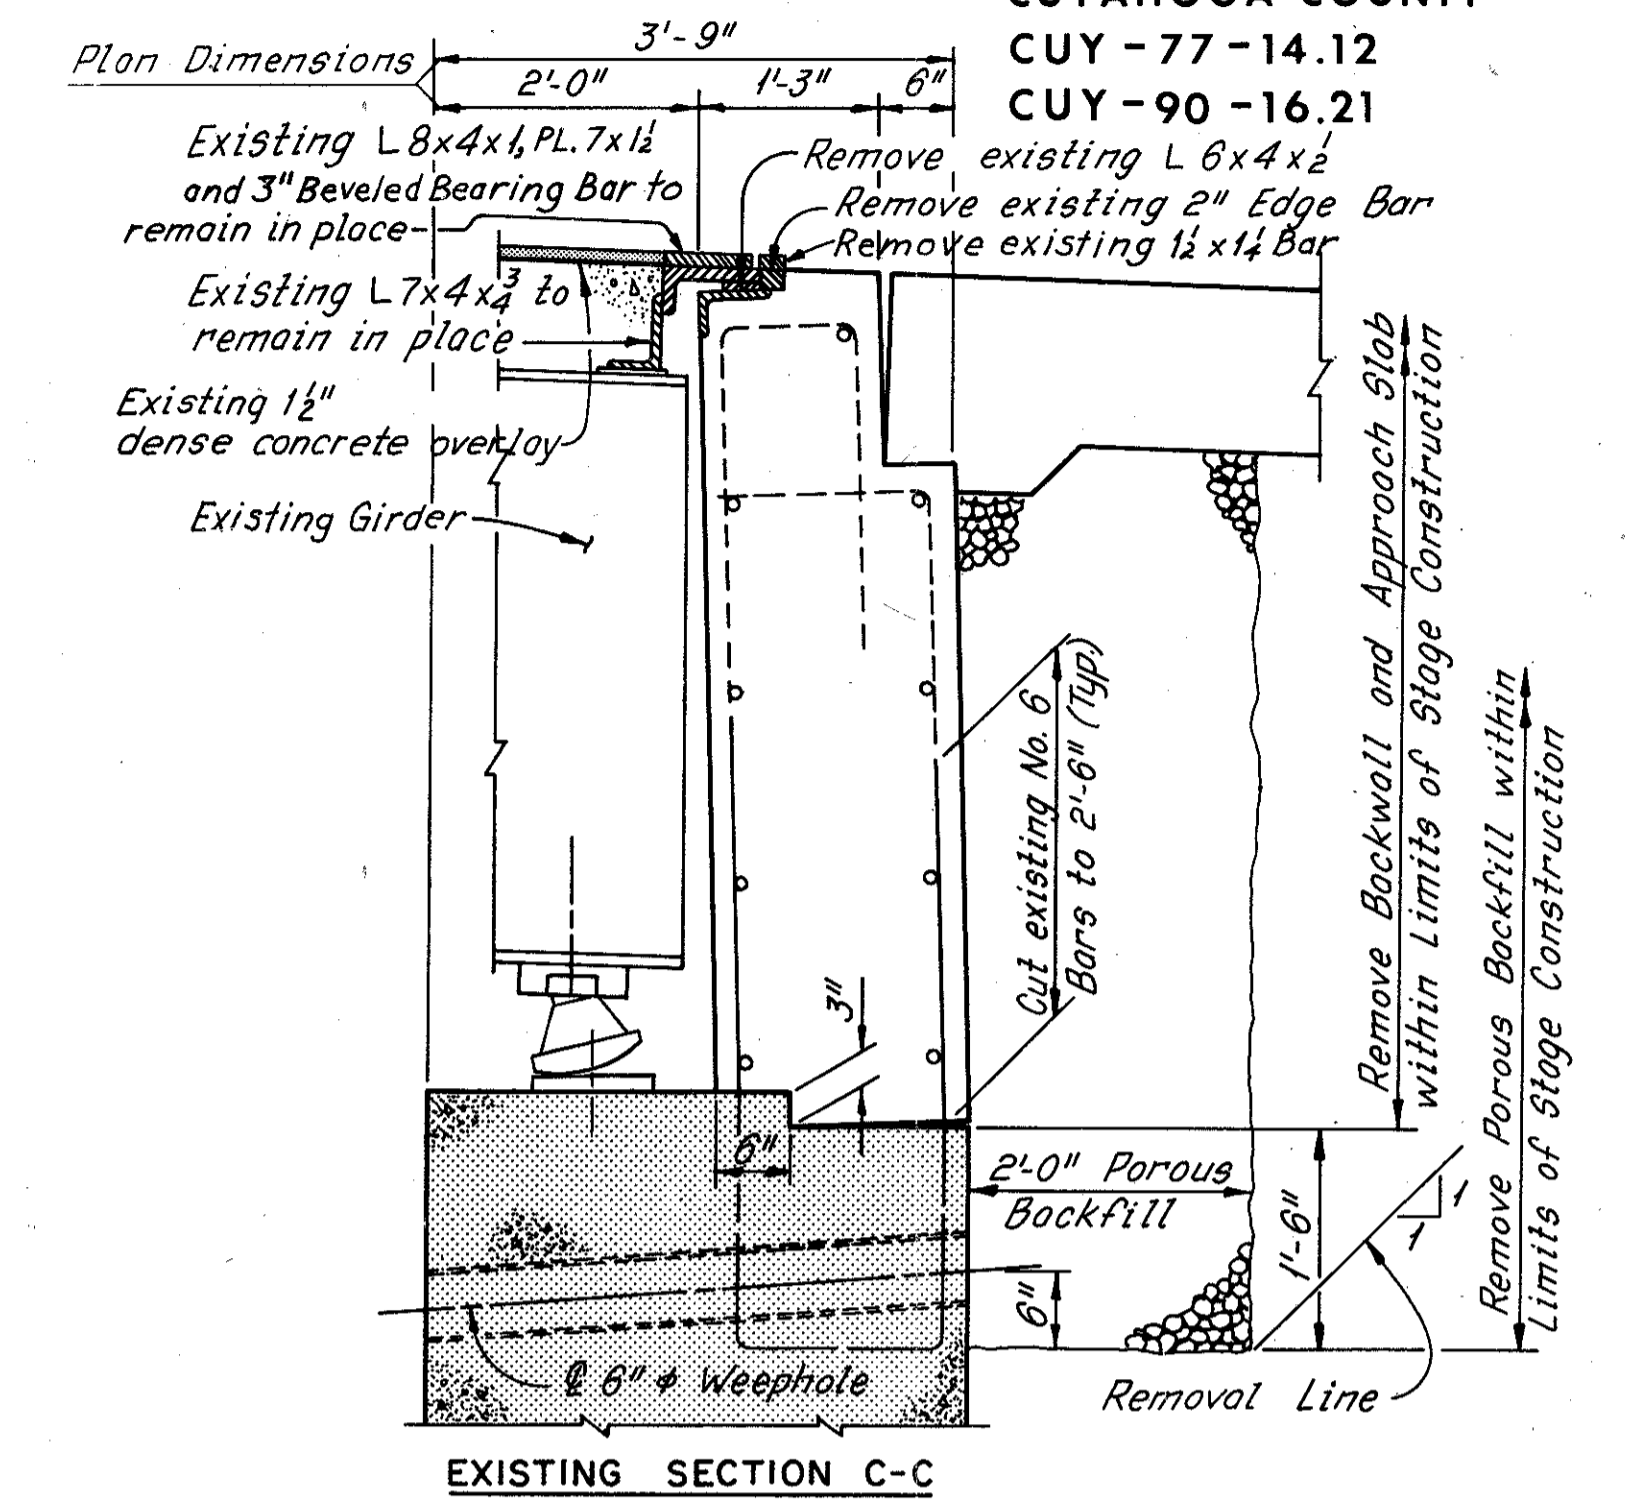 CUYAHOGA COUNTY
CUY - 77 - 14.12
CUY - 90 - 16.21
Plan Dimensions
3'-9"
2'-0"
1'-3"
6"
Existing L 8x4x1, PL. 7x1½
and 3" Beveled Bearing Bar to
remain in place
Remove existing L 6x4x½
Remove existing 2" Edge Bar
Remove existing 1½ x 1¼ Bar
Existing L 7x4x¾ to
remain in place
Existing 1½"
dense concrete overlay
Existing Girder
Cut existing No. 6
Bars to 2'-6" (Typ.)
3"
Remove Backwall and Approach Slab
within Limits of Stage Construction
Remove Porous Backfill within
Limits of Stage Construction
6"
2'-0" Porous
Backfill
1'-6"
1
1
6"
℄ 6" φ Weephole
Removal Line
EXISTING SECTION C-C